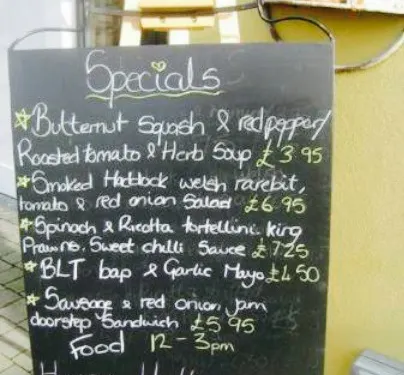 Specials
☆ Butternut Squash & red pepper/
Roasted tomato & Herb Soup £3.95
☆ Smoked Haddock welsh rarebit,
tomato & red onion Salad £6.95
☆ Spinach & Ricotta tortellini king
Prawns, Sweet chilli Sauce £7.25
☆ BLT bap & Garlic Mayo £4.50
☆ Sausage & red onion jam
doorstep Sandwich £5.95
Food 12-3pm